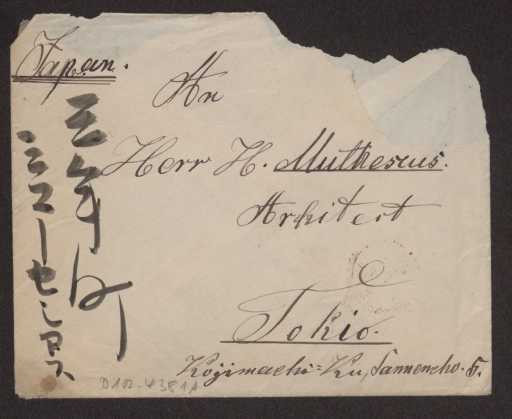 Japan.
An
Herr H. Muthesius.
Arkitect
Tokio.
Kojimachi=Ku, Sannencho. 5.
三年町
ミユーセシアス
D102-4381A